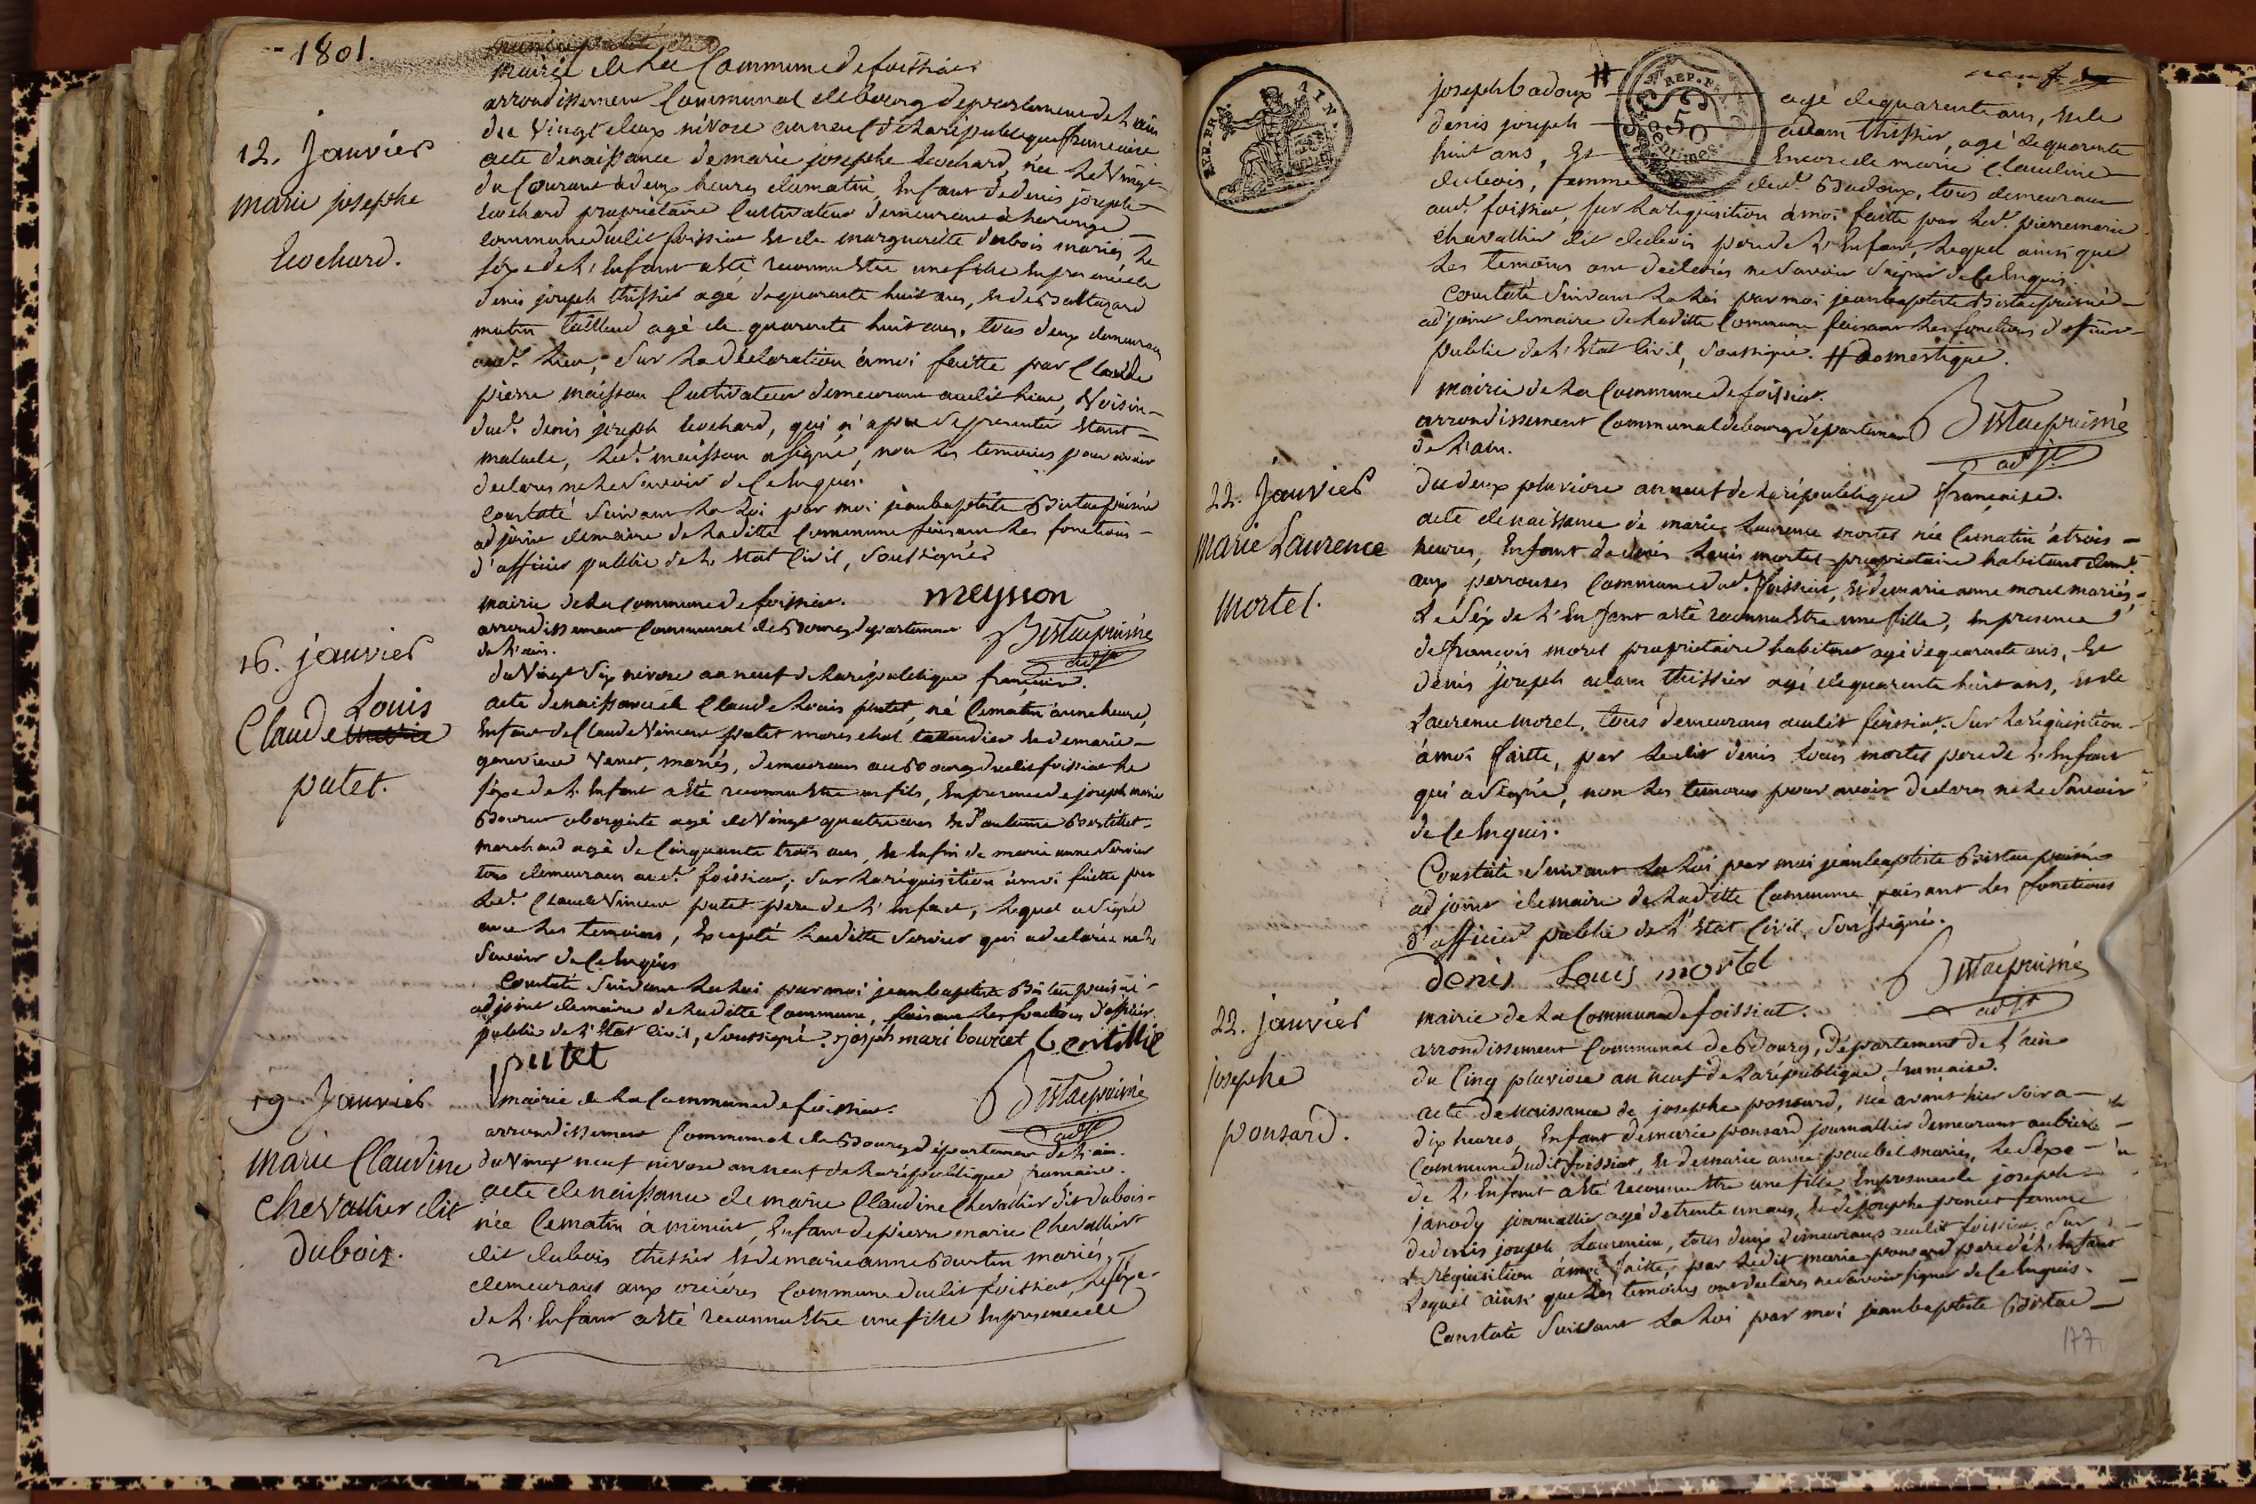 1801.
mairie de la Commune de foissiat
arrondissement Communal de bourg departement de l'ain
du Vingt deux nivose an neuf de la republique francaise
12. Janvier
acte de naissance de marie josephe Cochard, née le Vingt
marie josephe
du Courant à deux heures du matin, Enfant de denis joseph
Cochard propriétaire Cultivateur demeurant à
Cochard.
commune dudit foissiat et de marguerite dubois mariés, le
séxe de l'Enfant a été reconnu Etre une fille En presence de
denis joseph thissier agé de quarante huit ans, et de Baltazard
mutin tailland agé de quarante huit ans, tous deux demeurans
aud. lieu, Sur la déclaration à moi faitte par Claude
pierre maisson Cultivateur demeurant audit lieu, Voisin
dud. denis joseph Cochard, qui n'a pu se presenter Etant
malade, led. maisson a signé, non les temoins pour avoir
declarés ne le Savoir de Ce Enquis.
Constaté Suivant la Loi par moi jean baptiste Bistac puisné
adjoint du maire de la ditte Commune faisant les fonctions
d'officier public de l'Etat Civil, Soussigné
meysson
mairie de la Commune de foissiat.
arrondissement Communal de Bourg departement
Bistac puisné
adjt
de l'ain.
16. janvier
du Vingt Six nivose an neuf de la republique francaise.
Louis
acte de naissance de Claude Louis putet, né Ce matin à une heure,
Claude
Enfant de Claude Vincent putet mareschal taillandier et de marie
genevieve Venet, mariés, demeurans au Bourg dudit foissiat le
putet.
séxe de l'Enfant a été reconnu Etre un fils, En presence de joseph marie
Bourcet abergiste agé de Vingt quatre ans et d'antoine Bertillet
marchand agé de Cinquante trois ans, et Enfin de marie anne Servier
tous demeurans aud. foissiat, Sur la réquisition à moi faitte par
led. Claude Vincent putet pere de l'Enfant, lequel a Signé
avec les temoins, Excepté laditte Servier qui a declarée ne le
Savoir de Ce Enquis
Constaté Suivant la Loi par moi jean baptiste Bistac puisné
adjoint du maire de la ditte Commune, faisant les fonctions d'officier
public de l'Etat Civil, Soussigné. joseph mari bourcet
putet
19 Janvier
Bistac puisné
adjt
mairie de la Commune de foissiat.
arrondissement Communal de Bourg département de l'ain.
marie Claudine
du Vingt neuf nivose an neuf de la république francaise.
chevallier dit
acte de naissance de marie Claudine Chevallier dit dubois
dubois.
née Ce matin à minuit, Enfant de pierre marie Chevallier
dit dubois thissier et de marie anne mariés,
demeurans aux Commune dudit foissiat, le séxe
de l'Enfant a été reconnu Etre une fille En presence de
REP. FRA. AIN.
REP. FRA. 50 Centimes
joseph badoux # agé de quarante ans, et de
denis joseph adam thissier, agé de quarante
huit ans, Et Encore de marie Claudine
dubois, femme dud. Badoux, tous demeurans
aud. foissiat, Sur la requisition à moi faitte par led. pierre marie
chevallier dit dubois pere de l'Enfant, lequel ainsi que
les temoins ont declarés ne Savoir Signer de Ce Enquis.
Constaté Suivant la Loi par moi jean baptiste Bistac puisné
adjoint du maire de la ditte Commune faisant les fonctions d'officier
public de l'Etat Civil, Soussigné. # domestique.
mairie de la Commune de foissiat.
arrondissement Communal de bourg département
Bistac puisné
adjt
de l'ain.
22. Janvier
du deux pluviose an neuf de la république francaise.
Marie Laurence
acte de naissance de marie Laurence mortel née Ce matin à trois
heures, Enfant de denis Louis mortel propriétaire habitant demt
mortel.
aux perrouses Commune dud. foissiat, et de marie anne morel mariés,
le séx de l'Enfant a été reconnu Etre une fille, En presence
de francois morel propriétaire habitant agé de quarante ans, Et
denis joseph adam thissier agé de quarante huit ans, et de
Laurence morel, tous demeurans audit foissiat. Sur la réquisition
à moi faitte, par ledit denis Louis mortel pere de l'Enfant
qui a Signé, non les temoins pour avoir declarés ne le Savoir
de Ce Enquis.
Constaté Suivant la Loi par moi jean baptiste Bistac puisné
adjoint du maire de la ditte Commune, faisant les fonctions
d'officier public de l'Etat Civil, Soussigné.
denis Louis mortel
Bistac puisné
adjt
22. janvier
mairie de la Commune de foissiat.
arrondissement Communal de Bourg, département de l'ain
josephe
du Cinq pluviose an neuf de la république francaise.
ponsard.
acte de naissance de josephe ponsard, née avant hier Soir a
dix heures, Enfant de marie ponsard journallier demeurant
Commune dudit foissiat, et de marie anne mariés, le Séxe
de l'Enfant a été reconnu Etre une fille En presence de joseph
janody journallier agé de trente un ans, et de josephe poncet femme
de denis joseph Laurencin, tous deux demeurans audit foissiat. Sur
la réquisition à moi faitte, par ledit marie ponsard pere de l'Enfant
lequel ainsi que les temoins ont declarés ne Savoir signer de Ce Enquis.
Constaté Suivant la Loi par moi jean baptiste Bistac
177